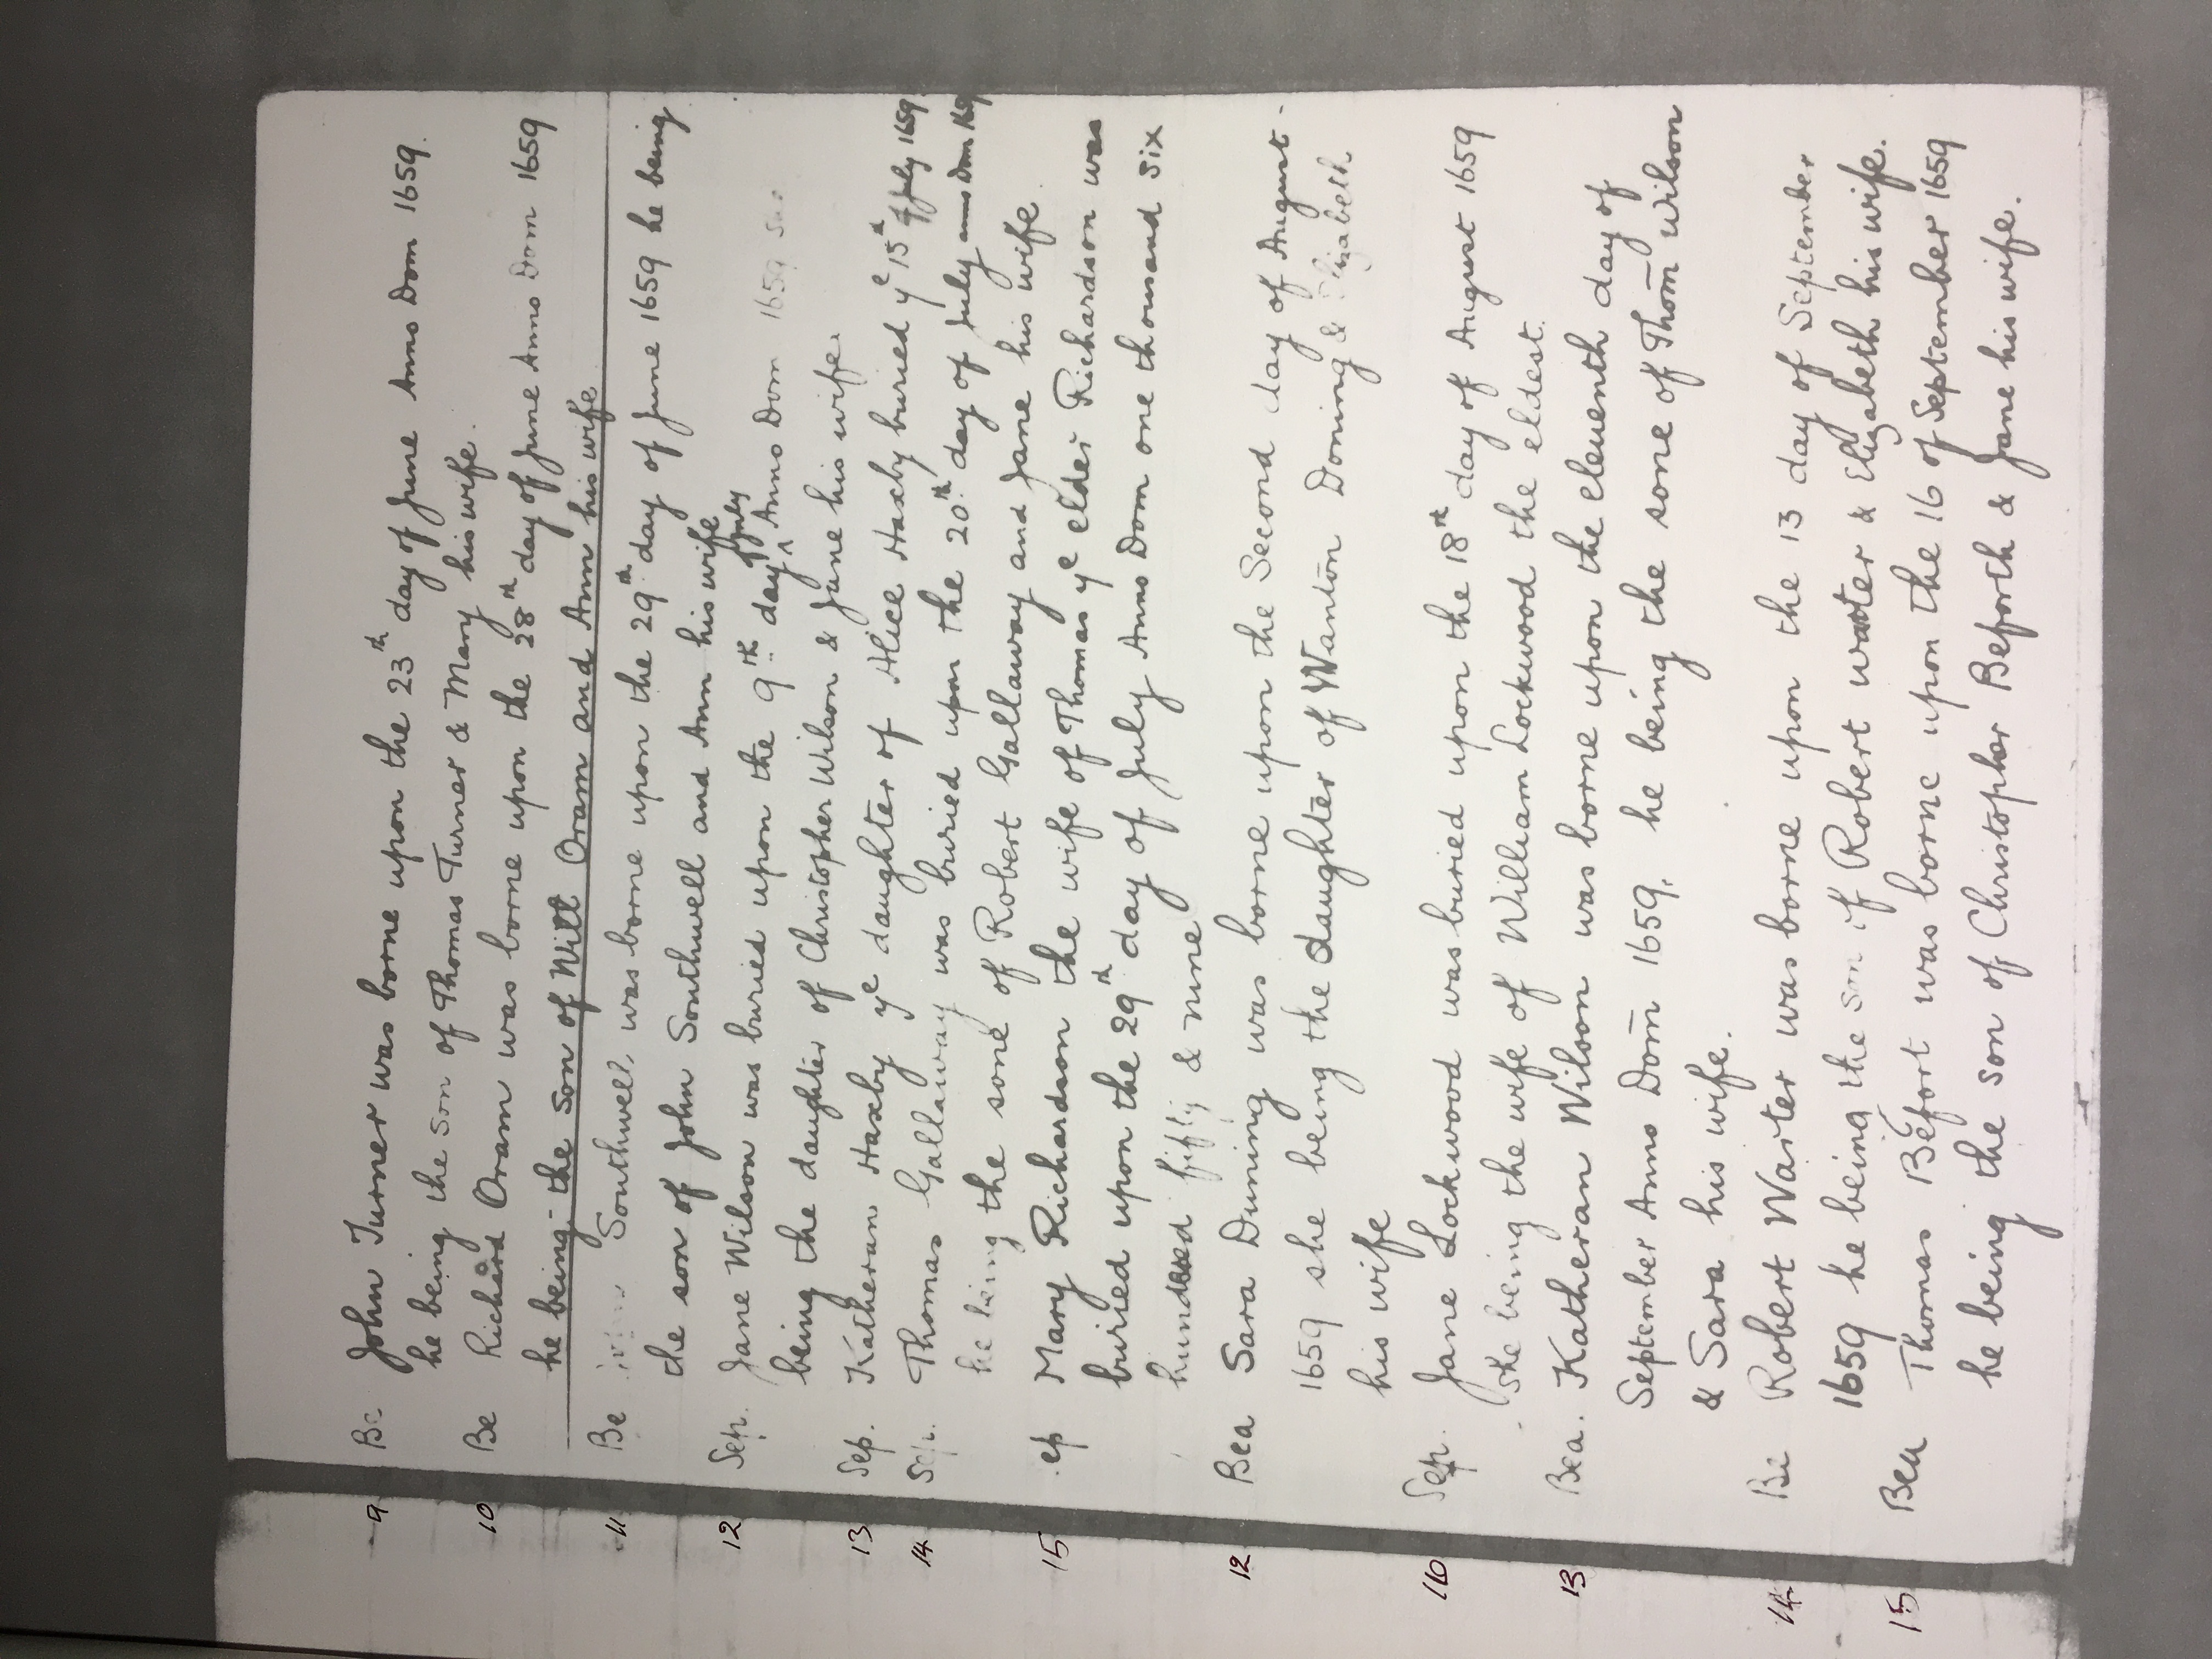 9 Be John Turner was borne upon the 23th day of June Anno Dom 1659.
he being the son of Thomas Turner & Mary his wife.
10 Be Richard Oram was borne upon the 28th day of June Anno Dom 1659
he being the son of Will Oram and Ann his wife
11 Be Southwell was borne upon the 29th day of June 1659 he being
the son of John Southwell and Ann his wife
12 Sep. Jane Wilson was buried upon the 9th day of July Anno Dom 1659 she
being the daughter of Christopher Wilson & Jane his wife.
13 Sep. Katheran Haxby ye daughter of Alice Haxby buried ye 15th of July 1659
14 Sep. Thomas Gallaway was buried upon the 20th day of July anno Dom 1659
he being the sone of Robert Gallaway and Jane his wife
15 ep Mary Richardson the wife of Thomas ye elder Richardson was
buried upon the 29th day of July Anno Dom one thousand six
hundred fifty & nine
12 Bea Sara Duning was borne upon the Second day of August
1659 she being the daughter of Doning & Elizabeth
his wife
16 Sep. Jane Lockwood was buried upon the 18th day of August 1659
she being the wife of William Lockwood the eldest.
13 Bea. Katheran Wilson was borne upon the eleventh day of
September Anno Dom 1659. he being the sone of Thom Wilson
& Sara his wife.
14 Be Robert Warter was borne upon the 13 day of September
1659 he being the son of Robert warter & Elizabeth his wife.
15 Bea Thomas Befort was borne upon the 16 of September 1659
he being the son of Christopher Beforth & Jane his wife.